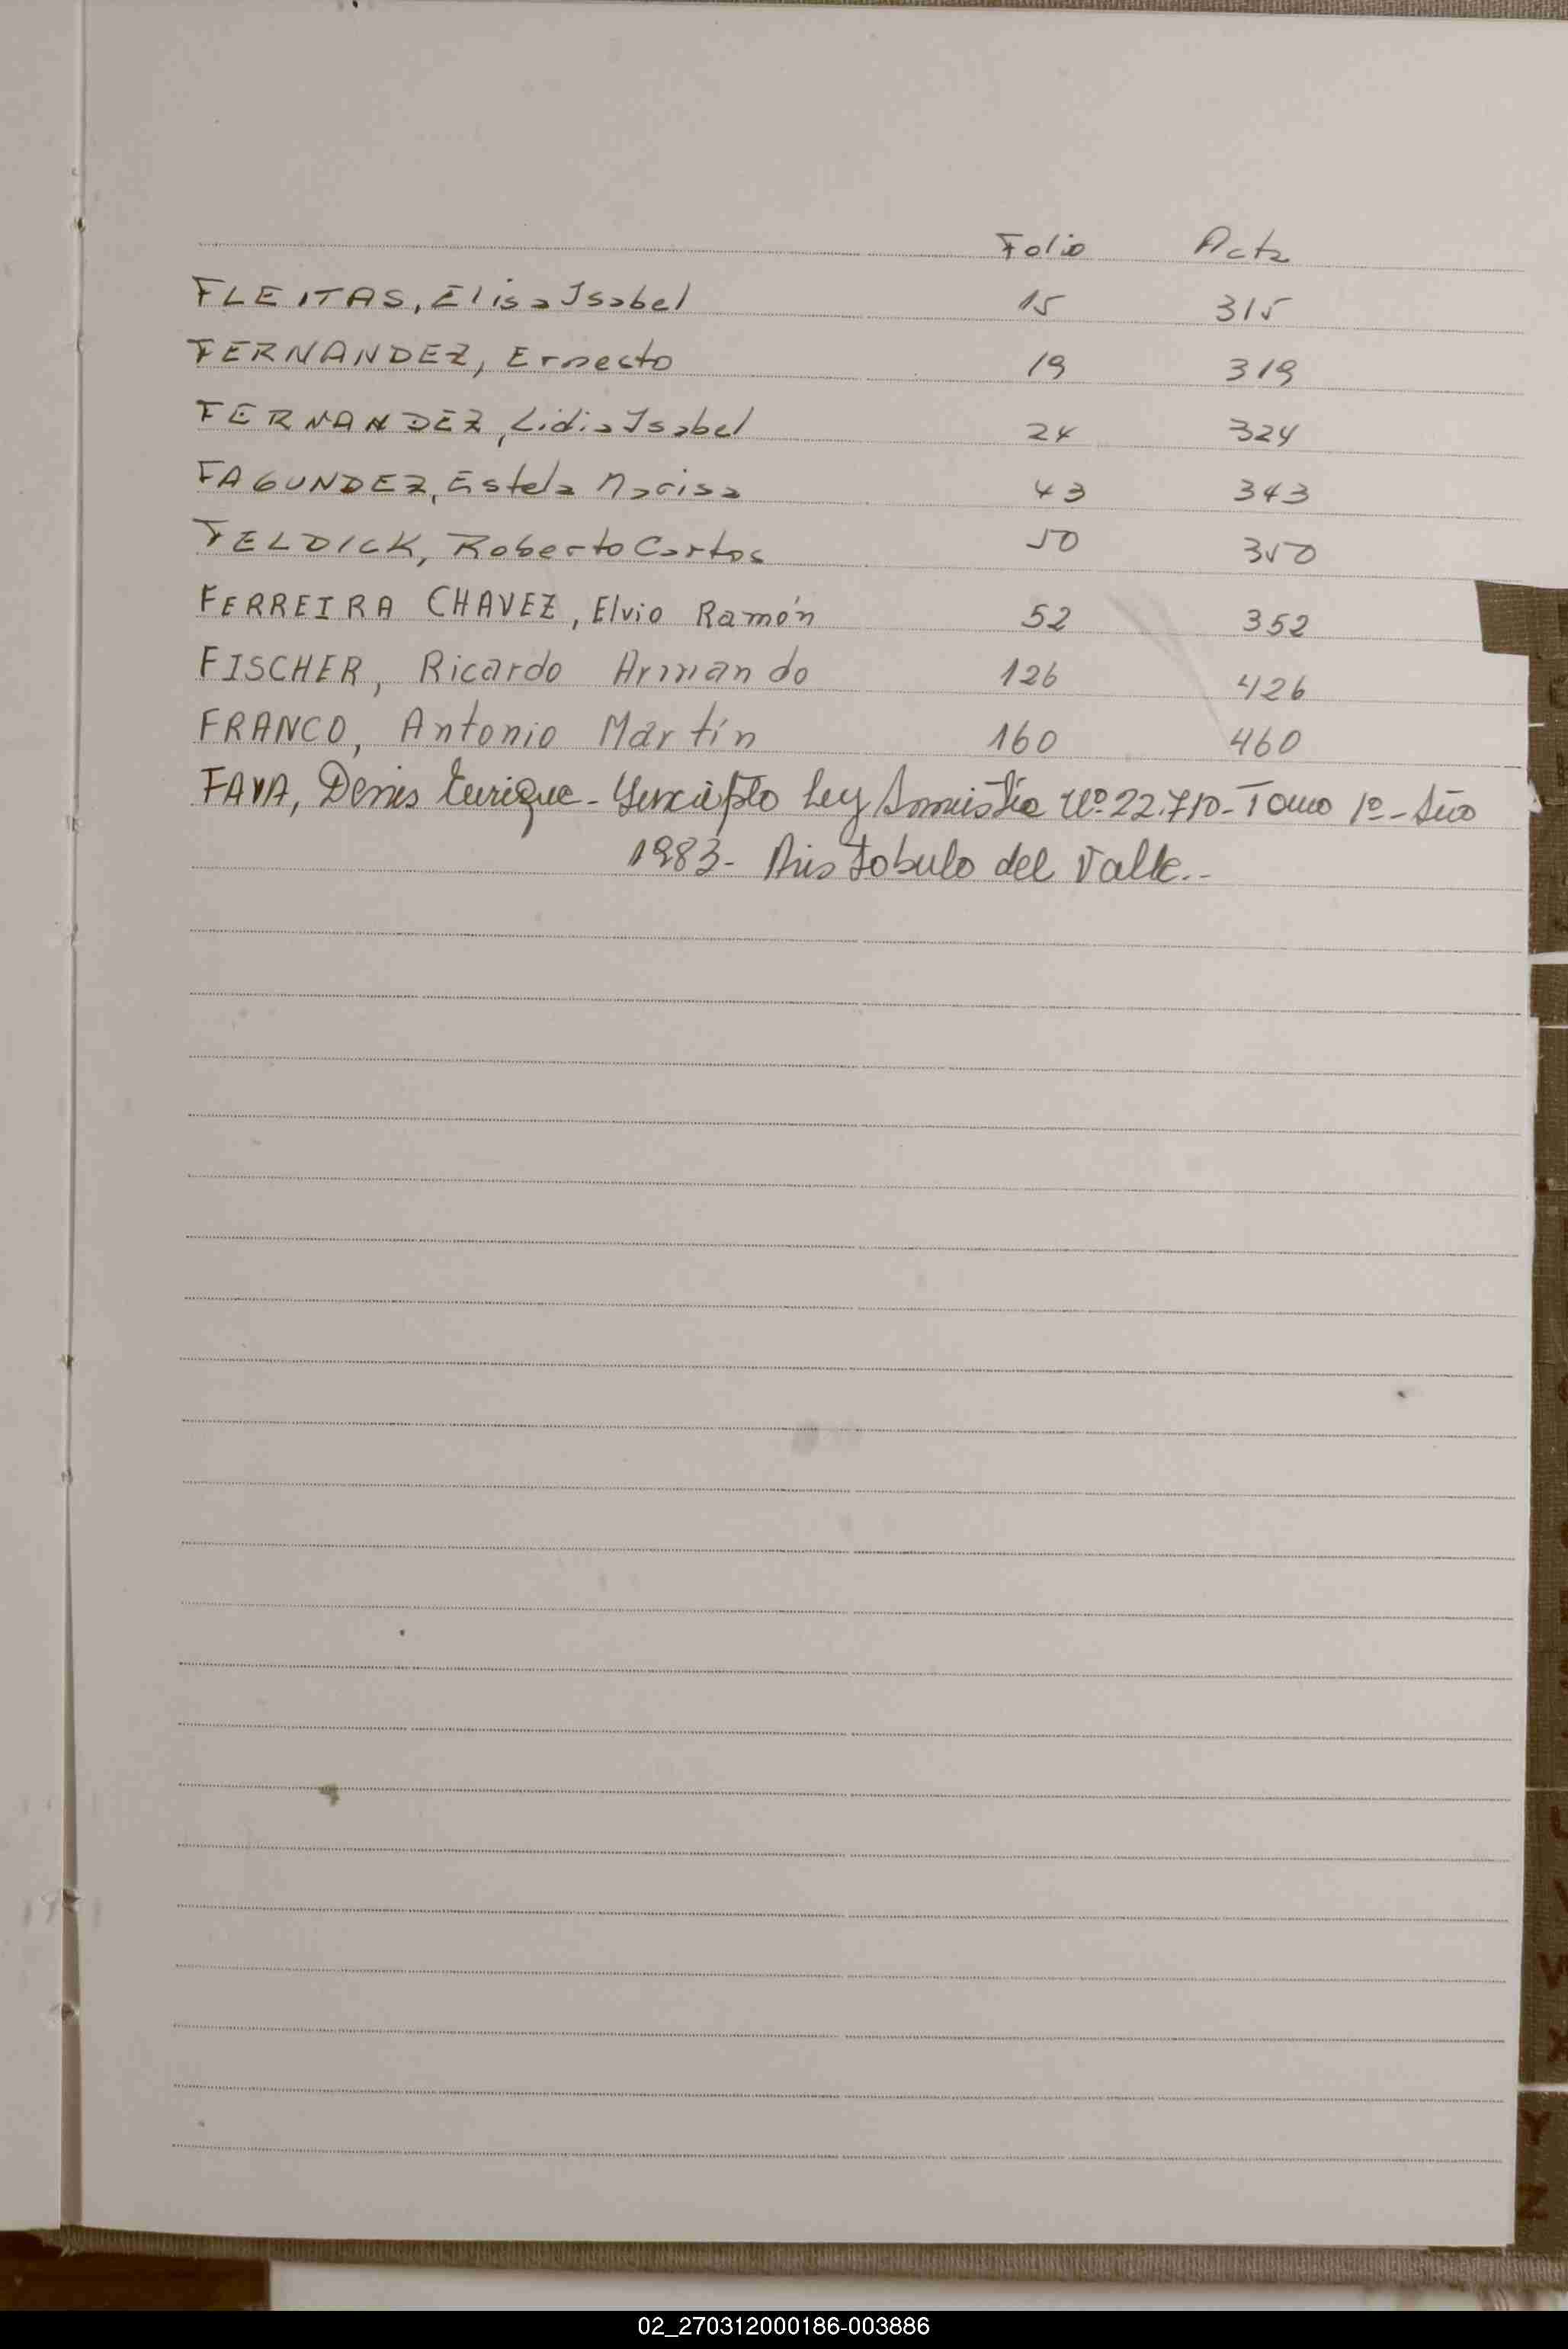 Folio Acta
FLEITAS, Elisa Isabel 15 315
FERNANDEZ, Ernesto 19 319
FERNANDEZ, Lidia Isabel 24 324
FAGUNDEZ, Estela Marisa 43 343
FELDICK, Roberto Carlos 50 350
FERREIRA CHAVEZ, Elvio Ramón 52 352
FISCHER, Ricardo Armando 126 426
FRANCO, Antonio Martín 160 460
FAVA, Denis Enrique - Inscripto Ley Amnistía Nº 22.710 - Tomo 1º - Año
1983 - Aristobulo del Valle.-
U
V
W
X
Y
Z
02_270312000186-003886